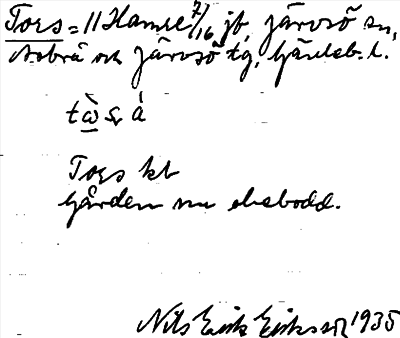 Tors = 11 Hamre 7/16 jb, Järvsö sn,
Arbrå och Järvsö tg, Gävleb. l.
Tors kt
Gården nu obebodd.
Nils Erik Eriksson 1935